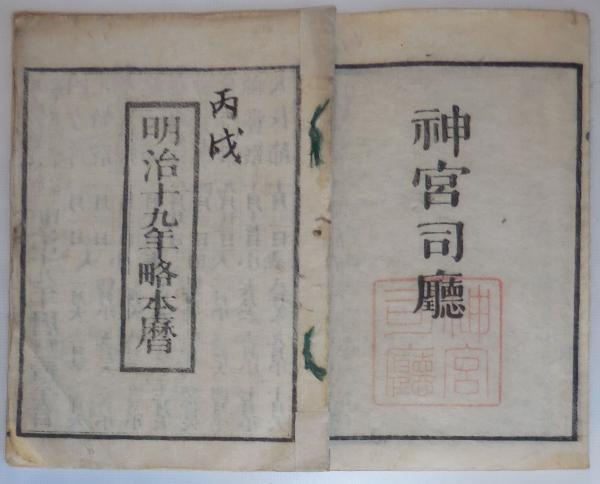 神宮司廳
神宮
司廳
丙戌
明治十九年略本暦